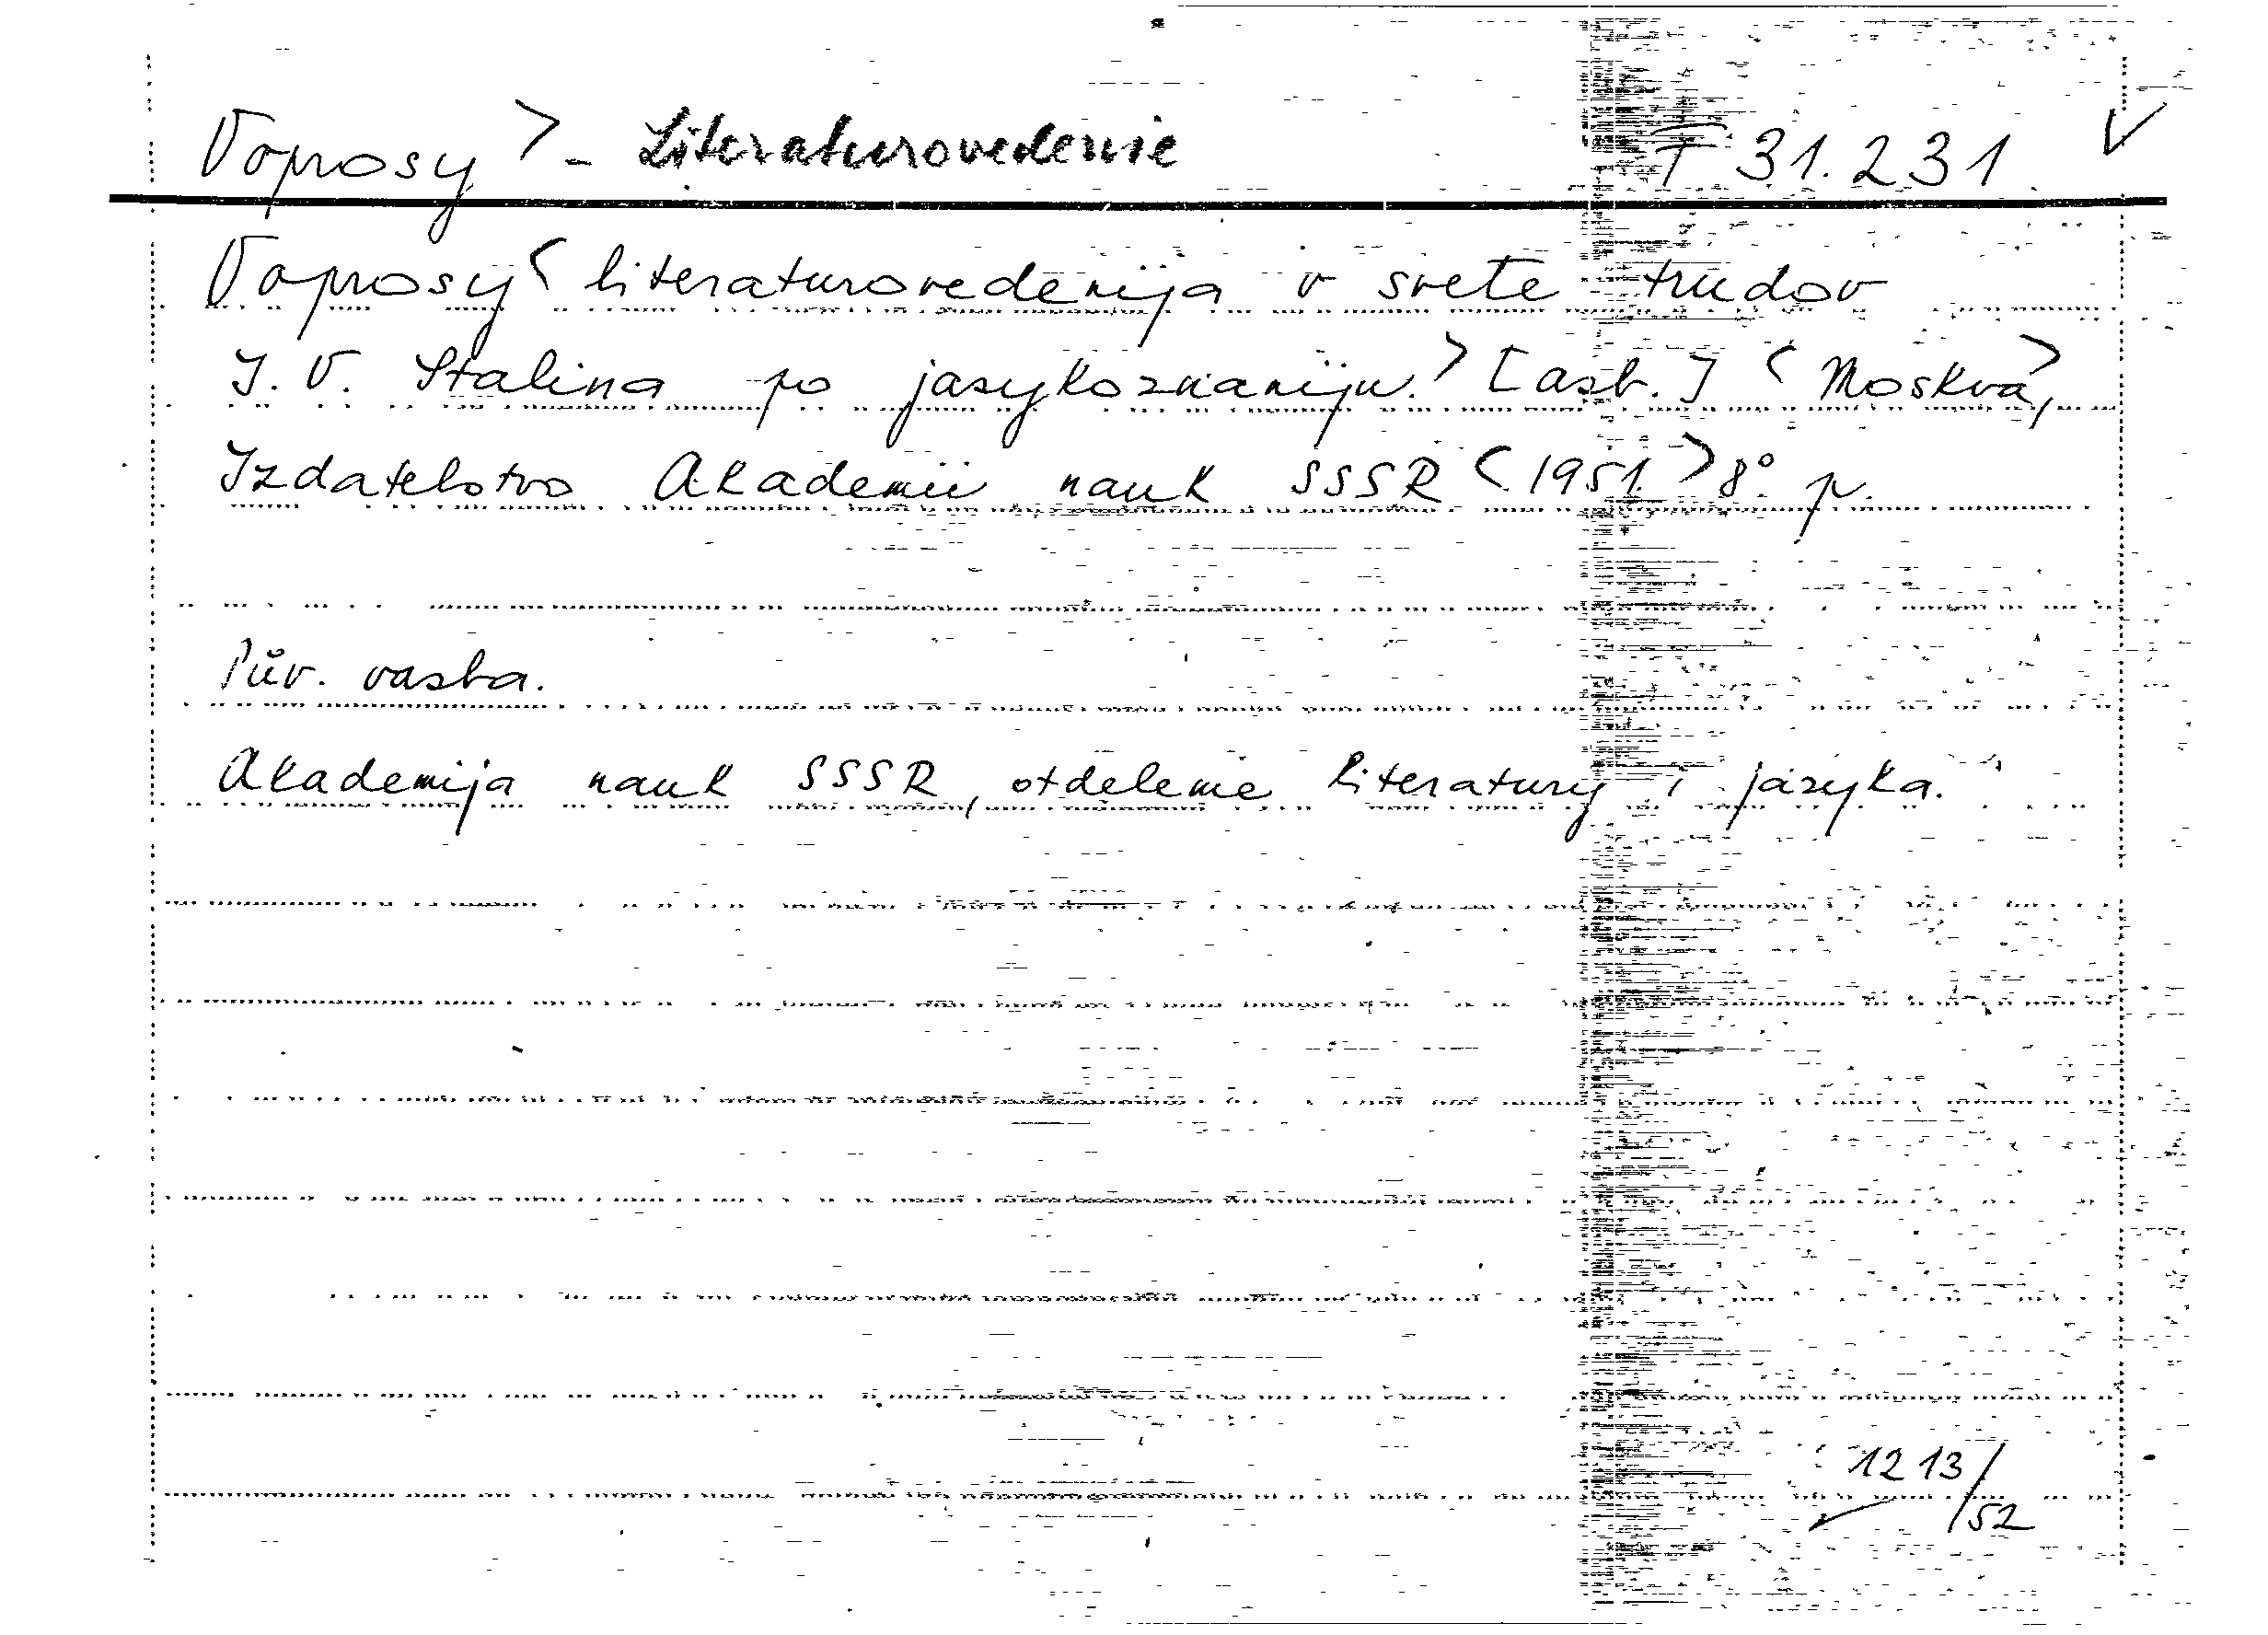 Voprosy > - Literaturovedenie T 31.231 V
Voprosy < literaturovedenija v svete trudov
I. V. Stalina po jazykoznaniju. > [azb.] < Moskva, >
Izdatelstvo Akademii nauk SSSR < 1951. > 8° p.
Pův. vazba.
Akademija nauk SSSR, otdelenie literatury i jazyka.
1213/52